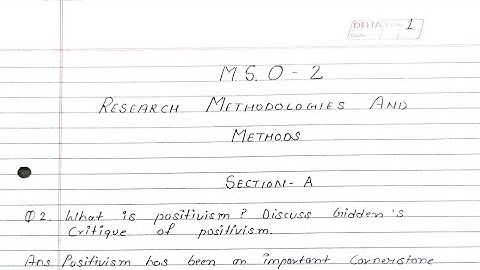 DELTA Pg No. 1
DATE
M.S.O - 2
RESEARCH METHODOLOGIES AND
METHODS
SECTION - A
Q2. What is positivism? Discuss Gidden's
Critique of positivism.
Ans Positivism has been an important Cornerstone